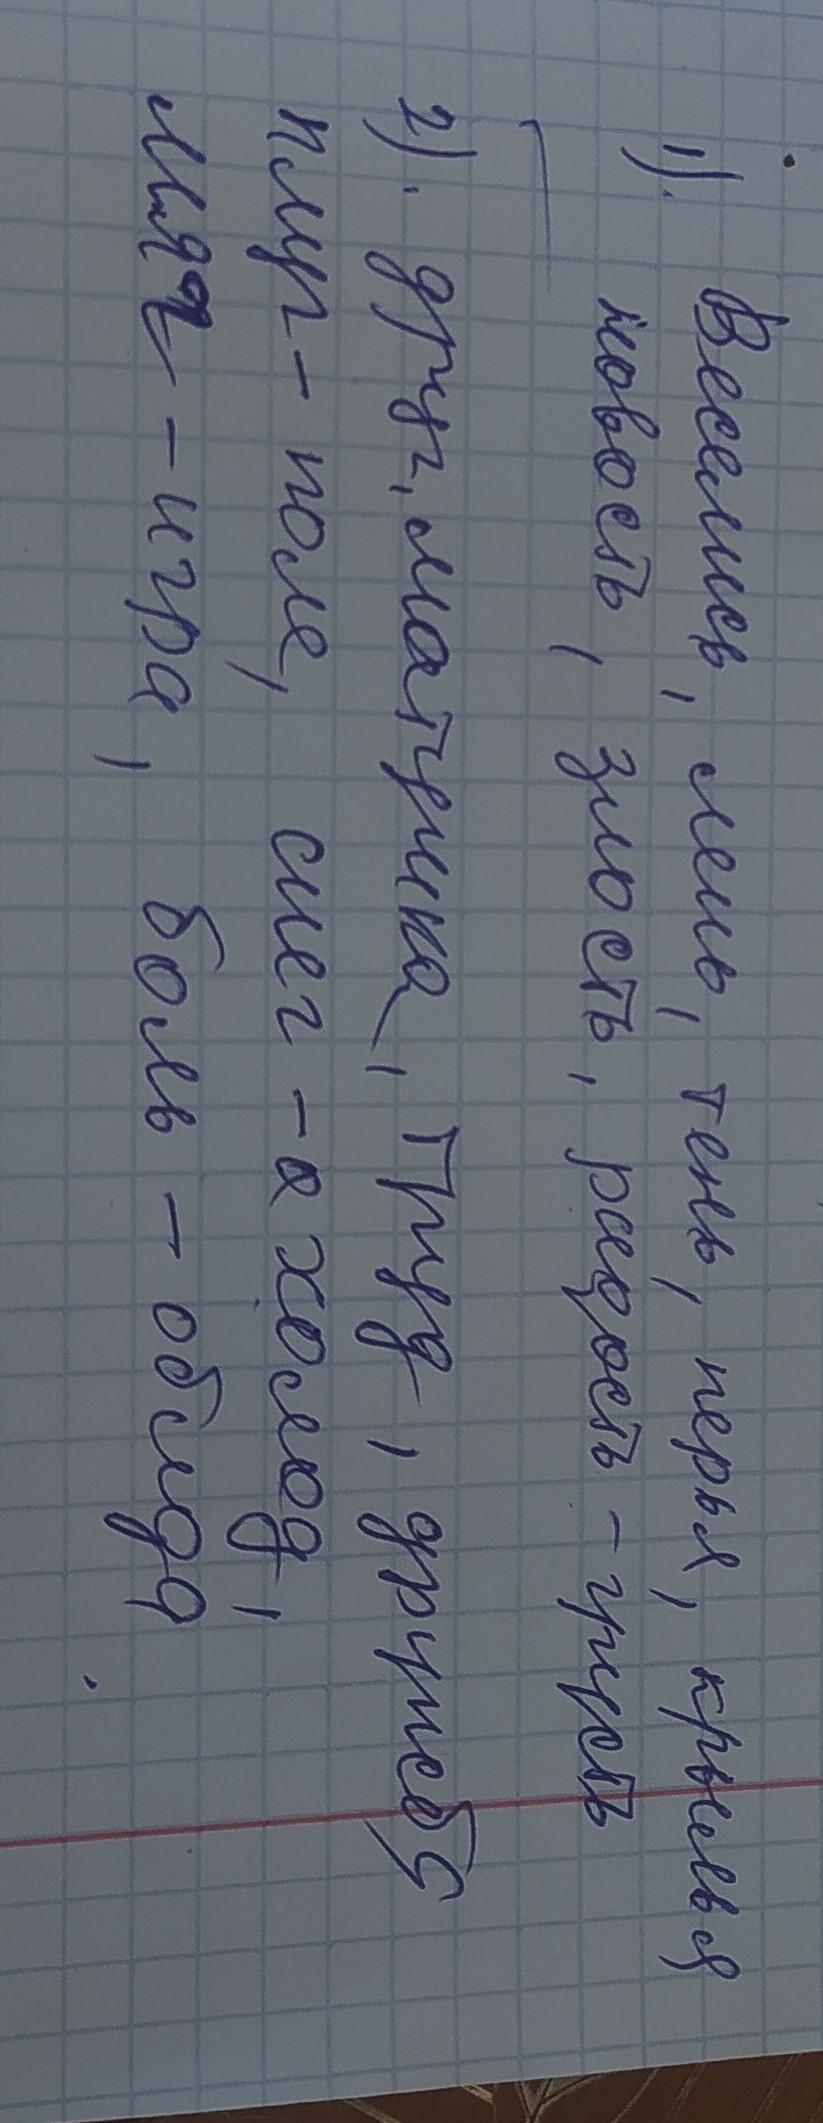 1). Веселись, лень, тень, перья, крылья
новость, злость, радость - грусть
2). друг, матушка, труд, дружба
плуг - поле, снег - а холод,
мяч - игра, боль - обида.